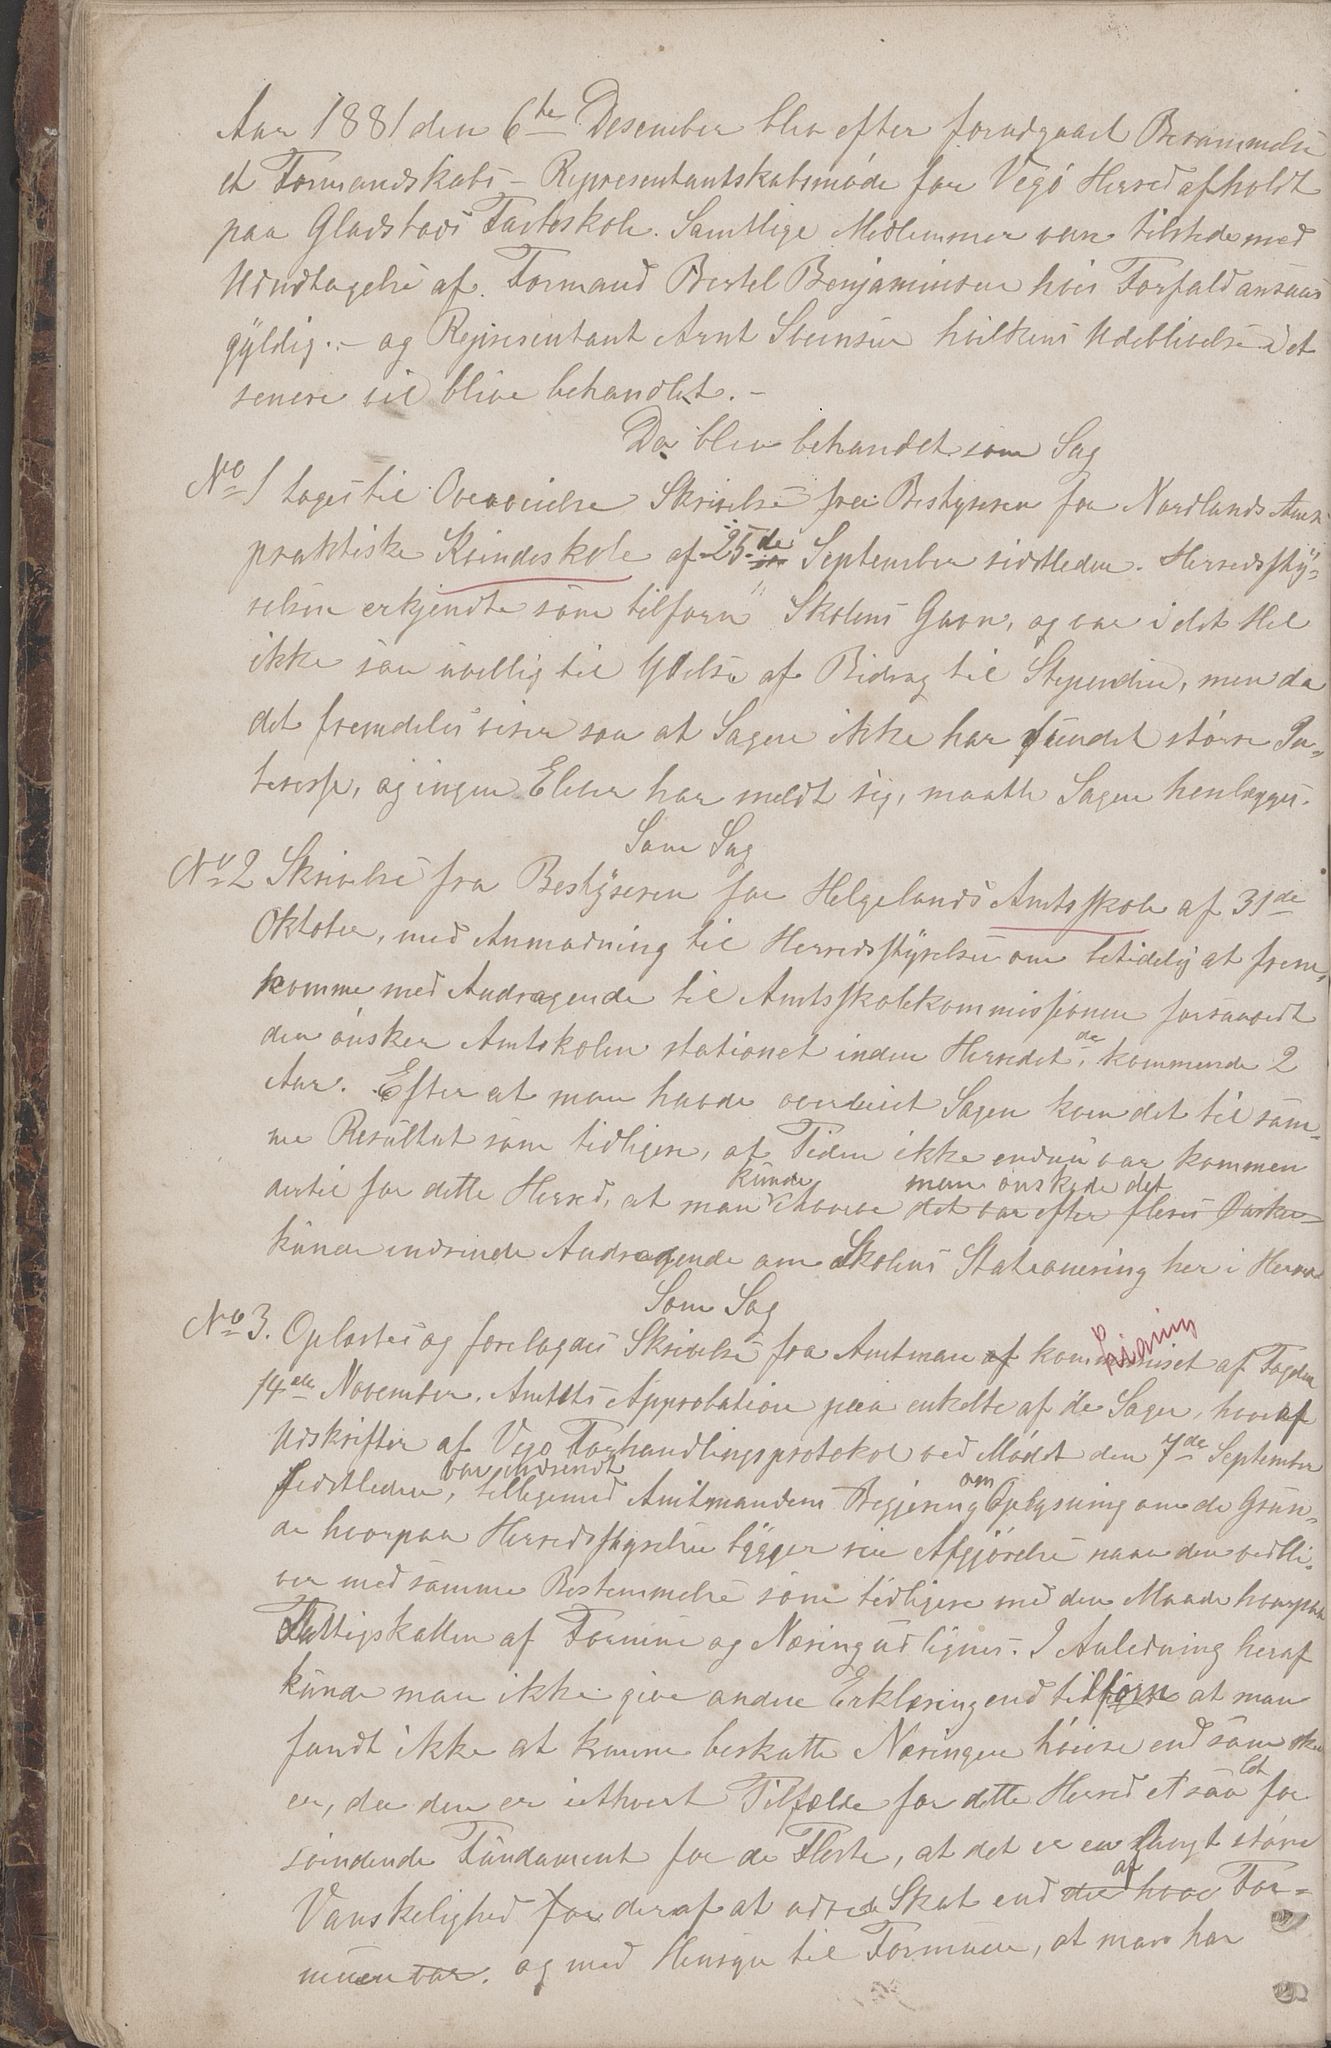 Aar 1881 den 6te Desember blev efter forudgaaet Berammelse
et Formandskabs- Representantskabsmøde for Vegø Herred afholdt
paa Gladstads Fastskole. Samtlige Medlemmer var tilstede med
Undtagelse af Formand Bertel Benjaminsen hvis Forfald ansaaes
gyldig. - og Representant Arnt Svensen hvilkens Udeblivelse i det
senere vil blive behandlet. -
Da blev behandlet som Sag
No 1 toges til Overveielse Skrivelse fra Bestyreren for Nordlands Amts
praktiske Kvindeskole af 25de September sidstleden. Herredssty-
relsen erkjendte som tilforn Skolens Gavn, og var i det Hel
ikke saa uvillig til Ydelse af Bidrag til Stipendier, men da
det fremdeles viser saa at Sagen ikke har fundet større In-
teresse, og ingen Elever har meldt sig, maatte Sagen henlægges.
Som Sag
No 2 Skrivelse fra Bestyreren for Helgelands Amtsskole af 31de
Oktober, med Anmodning til Herredsstyrelsen om betidelig at frem-
komme med Andragende til Amtsskolekommissionen forsaavidt
den ønsker Amtskolen stationet inden Herredet de kommende 2
Aar. Efter at man havde overveiet Sagen kom det til sam-
me Resultat som tidligere, at Tiden ikke endnu var kommen
dertil for dette Herred, at man kunde hvorvel man ønskede det det var efter fleres Ønske
kunde indsende Andragende om Skolens Stationering her i Herred
Som Sag
No 3. Oplæstes og forelagdes Skrivelse fra Amtmanden af kommuniset af Fogden
Ligning
14de November. Amtets Approbation paa enkelte af de Sager, hvoraf
Udskrifter af Vegø Forhandlingsprotokol ved Mødet den 7de September
sidstleden var indsendt, tilligemed Amtmandens Begjering om Oplysning om de Grun-
de hvorpaa Herredsstyrelsen bygger sin Afgjørelse naar den vedbli-
ver med samme Bestemmelse som tidligere med den Maade hvorpaa
Fattigskatten af Formue og Næring udlignes. I Anledning heraf
kunde man ikke give anden Erklæring end tilforn at man
fandt ikke at kunne beskatte Næringen høiere end som skeet
er, da den er i ethvert Tilfælde for dette Herred et saa let for
svindende Fundament for de Fleste, at det er en langt større
Vanskelighed for deraf at udrede Skat end af den hvor For-
muen var. og med Hensyn til Formuen, at man har